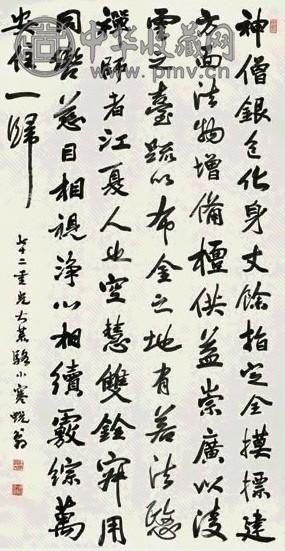 中华收藏网
www.pmv.cn
神僧銀色化身丈餘指定全摸標建
方面法物增備檀供益崇廣以凌
雲之臺疏以布金之地有若法愍
禪師者江夏人也空慧雙銓寂用
同轡慈目相視淨心相續覈綜萬
安住一歸
重光大荒駱小寒蜕翁